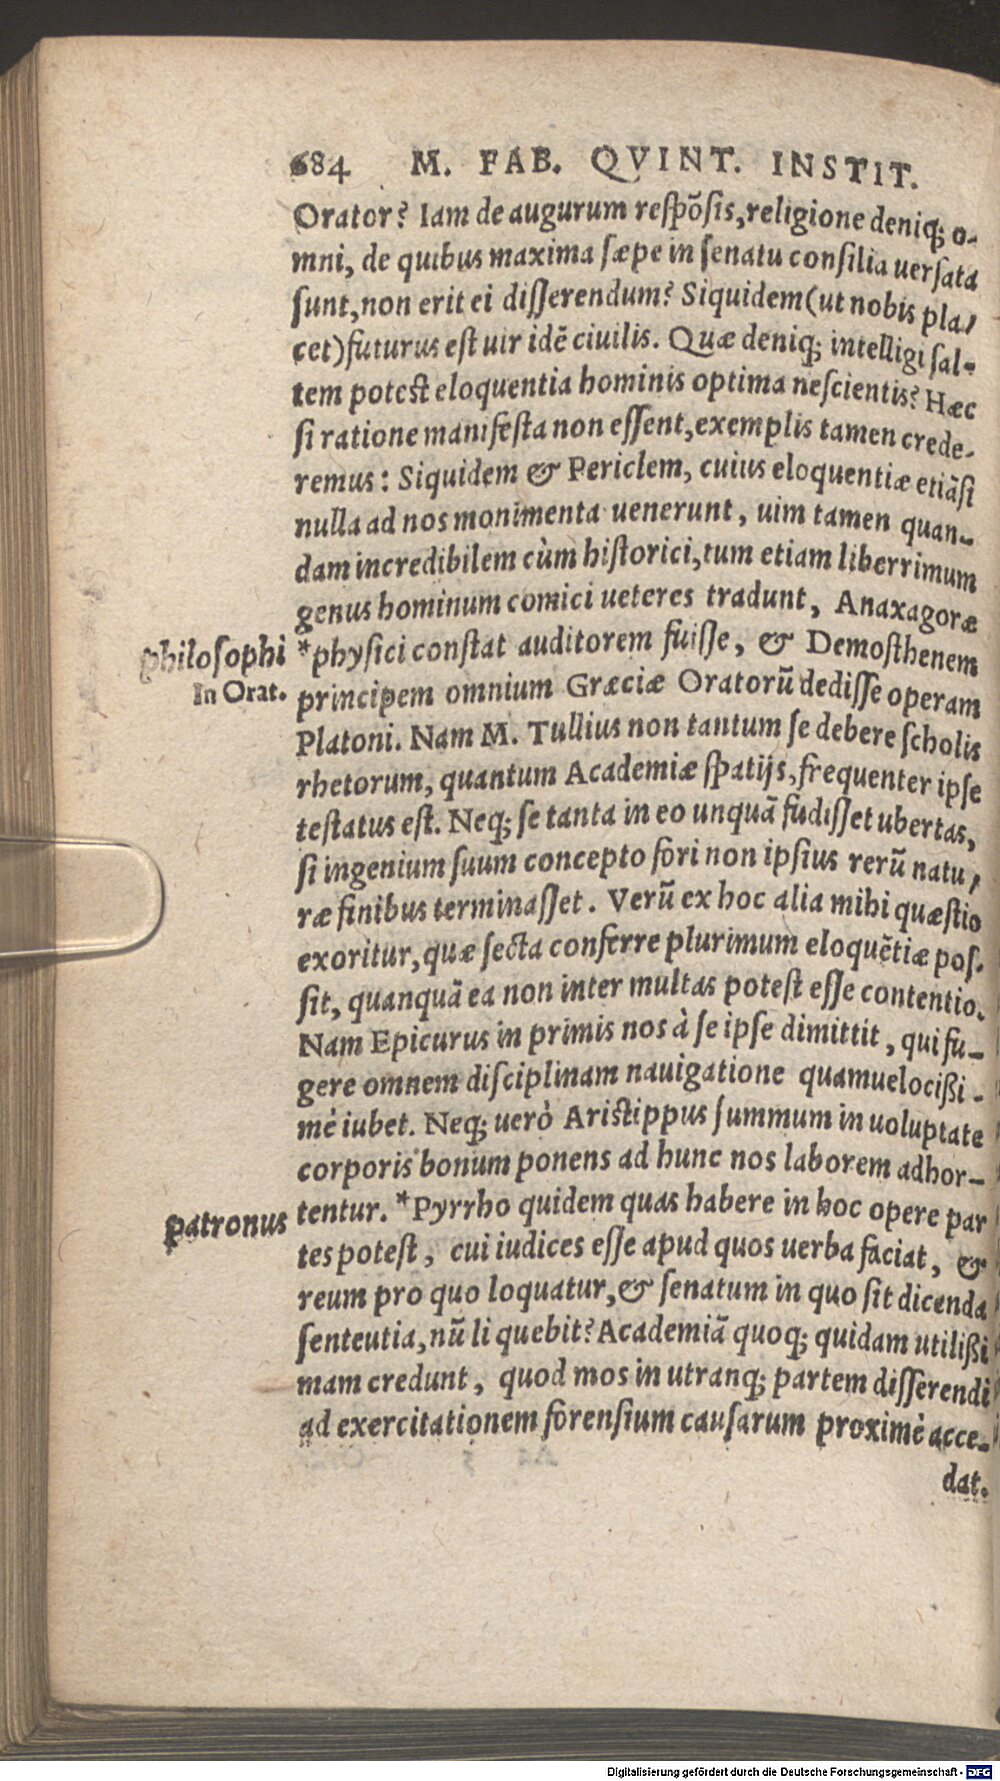 684 M. FAB. QVINT. INSTIT.
Orator? Iam de augurum respõsis, religione deniq; o-
mni, de quibus maxima sæpe in senatu consilia uersata
sunt, non erit ei disserendum? Siquidem (ut nobis pla-
cet) futurus est uir idẽ ciuilis. Quæ deniq; intelligi sal-
tem potest eloquentia hominis optima nescientis? Hæc
si ratione manifesta non essent, exemplis tamen crede-
remus: Siquidem & Periclem, cuius eloquentiæ etiãsi
nulla ad nos monimenta uenerunt, uim tamen quan-
dam incredibilem cùm historici, tum etiam liberrimum
genus hominum comici ueteres tradunt, Anaxagoræ
philosophi *physici constat auditorem fuisse, & Demosthenem
In Orat. principem omnium Græciæ Oratorũ dedisse operam
Platoni. Nam M. Tullius non tantum se debere scholis
rhetorum, quantum Academiæ spatijs, frequenter ipse
testatus est. Neq; se tanta in eo unquã fudisset ubertas,
si ingenium suum concepto fori non ipsius rerũ natu,
ræ finibus terminasset. Verũ ex hoc alia mihi quæstio
exoritur, quæ secta conferre plurimum eloquẽtiæ pos-
sit, quanquã ea non inter multas potest esse contentio.
Nam Epicurus in primis nos à se ipse dimittit, qui fu-
gere omnem disciplinam nauigatione quamuelocißi-
mè iubet. Neq; uerò Aristippus summum in uoluptate
corporis bonum ponens ad hunc nos laborem adhor-
patronus tentur. *Pyrrho quidem quas habere in hoc opere par
tes potest, cui iudices esse apud quos uerba faciat, &
reum pro quo loquatur, & senatum in quo sit dicenda
senteutia, nũ li quebit? Academiã quoq; quidam utilißi
mam credunt, quod mos in utranq; partem disserendi
ad exercitationem forensium causarum proximè acce-
dat.
Digitalisierung gefördert durch die Deutsche Forschungsgemeinschaft - DFG